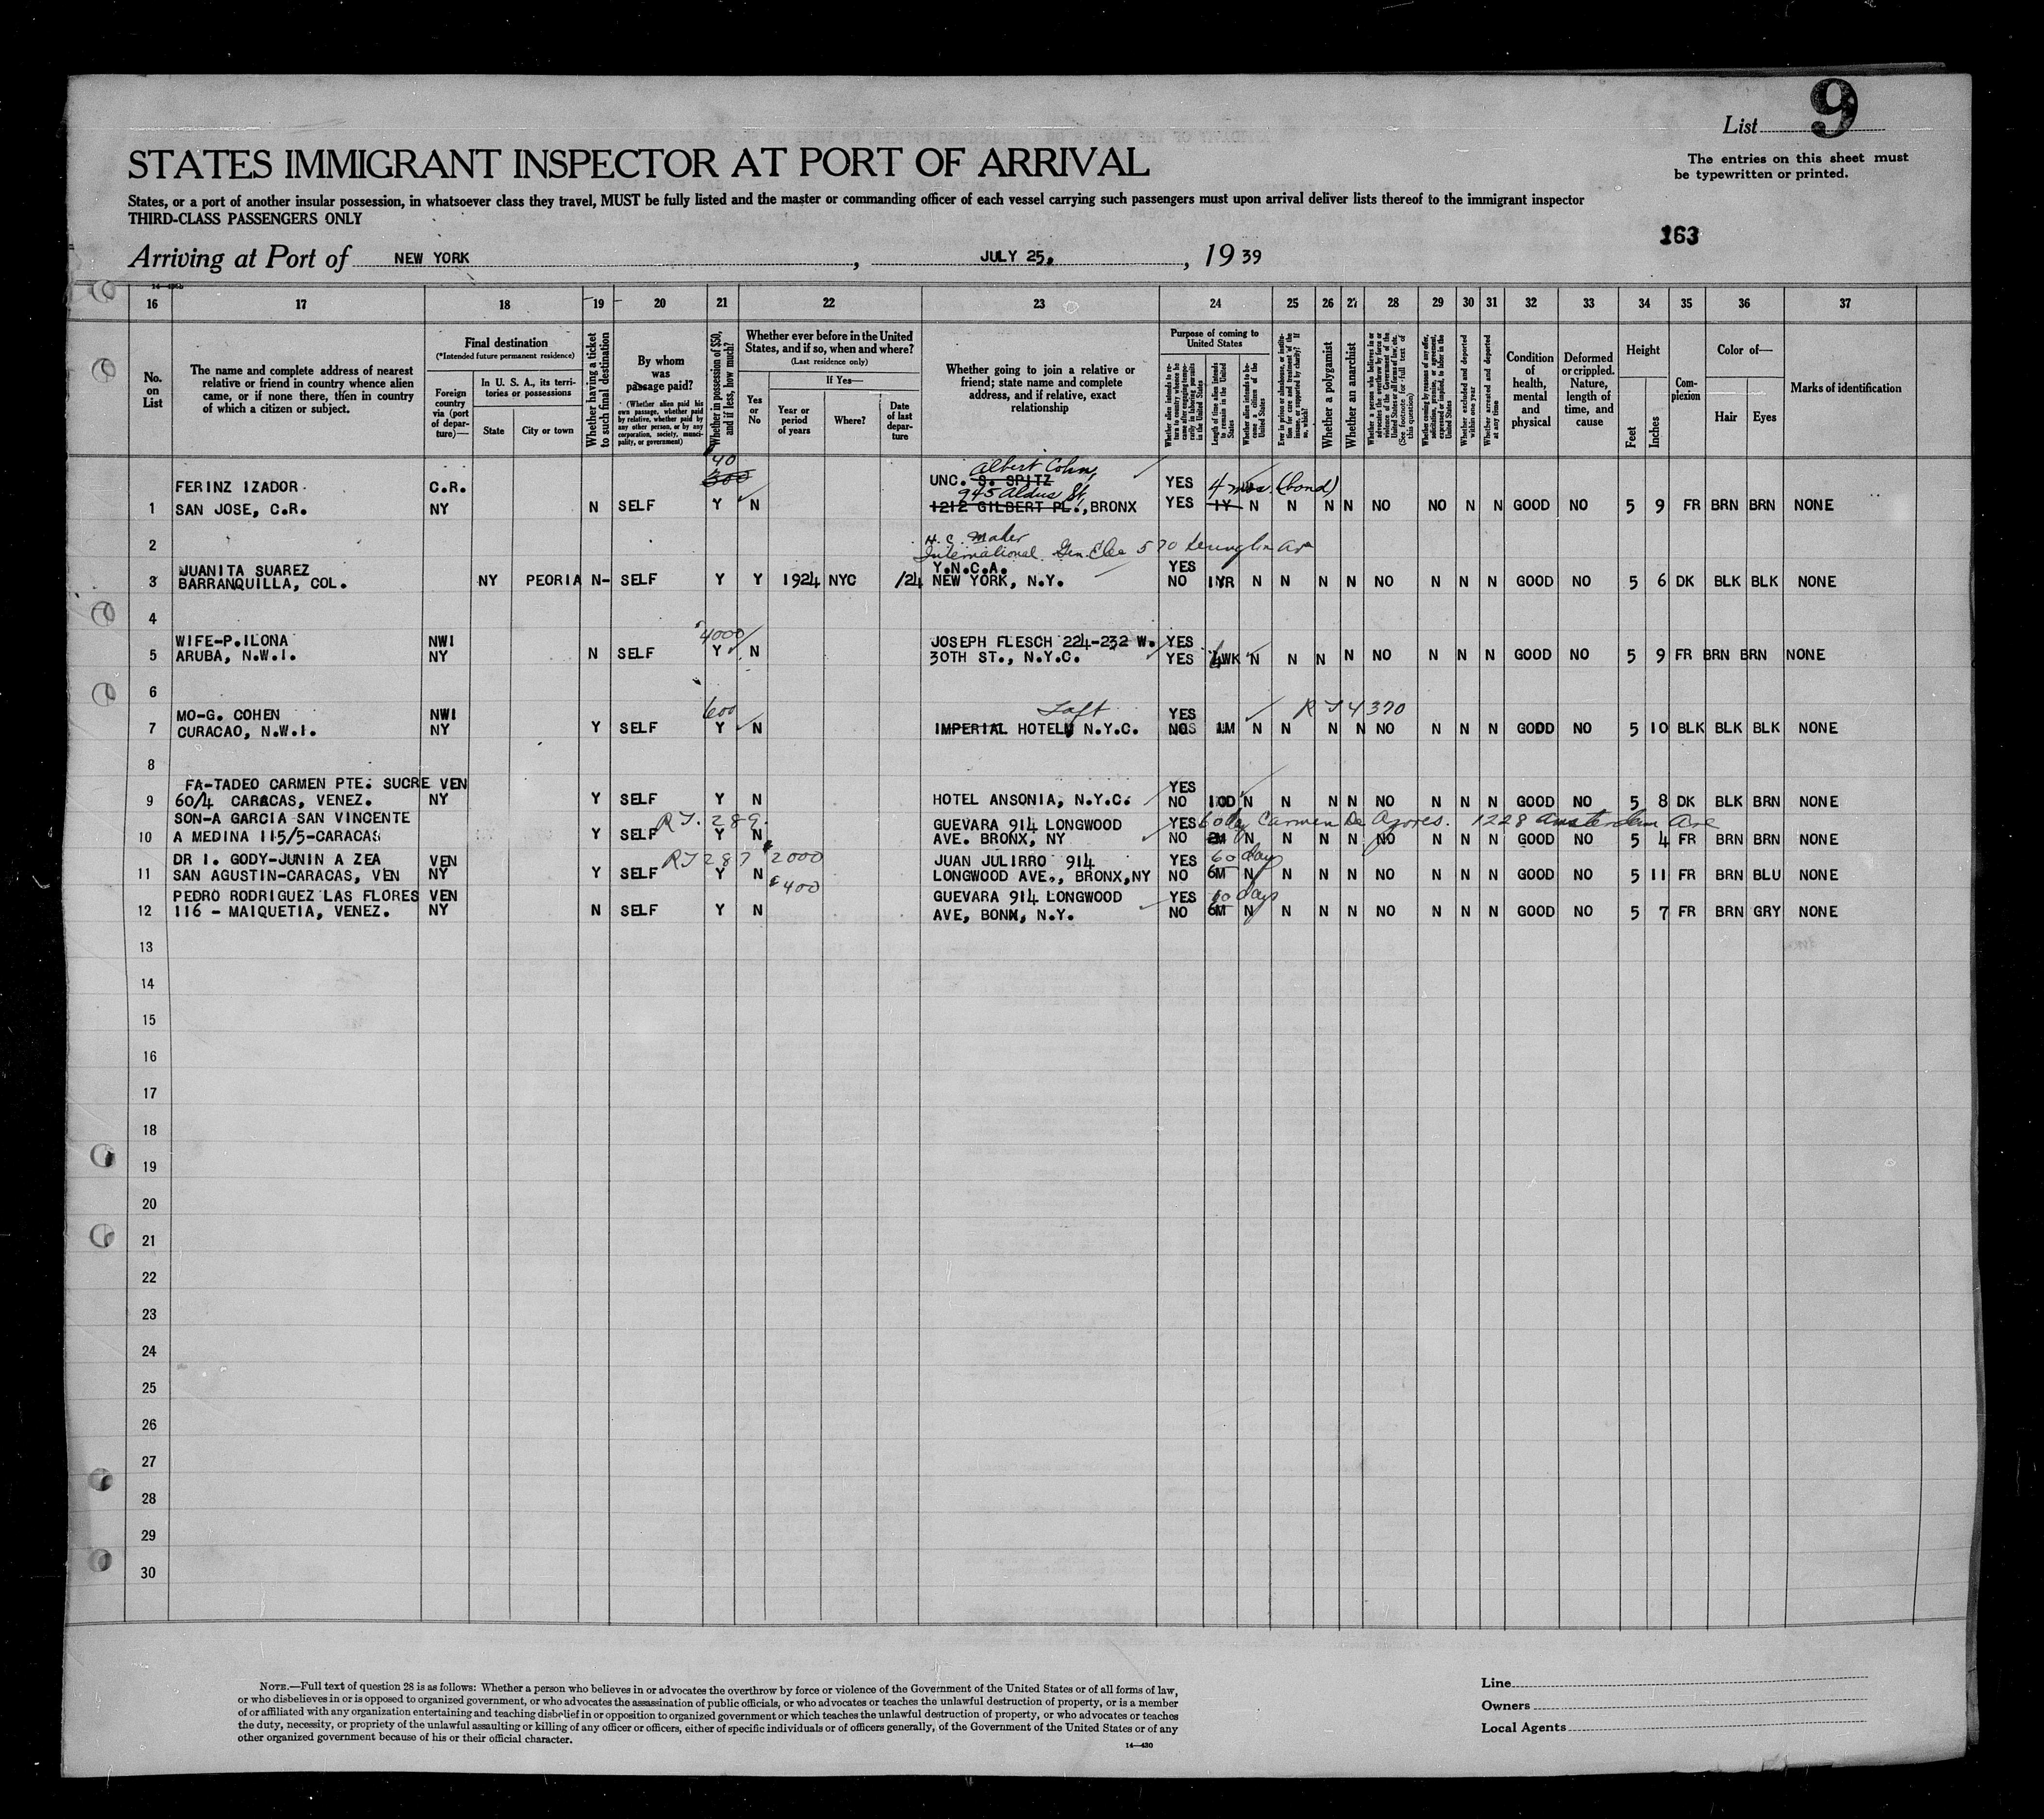 List 9
The entries on this sheet must
be typewritten or printed.
STATES IMMIGRANT INSPECTOR AT PORT OF ARRIVAL
States, or a port of another insular possession, in whatsoever class they travel, MUST be fully listed and the master or commanding officer of each vessel carrying such passengers must upon arrival deliver lists thereof to the immigrant inspector
THIRD-CLASS PASSENGERS ONLY
163
Arriving at Port of NEW YORK, JULY 25, 1939
16 17 18 19 20 21 22 23 24 25 26 27 28 29 30 31 32 33 34 35 36 37
No. on List
The name and complete address of nearest relative or friend in country whence alien came, or if none there, then in country of which a citizen or subject.
Final destination
(*Intended future permanent residence)
Foreign country via (port of departure)—
In U. S. A., its territories or possessions
State
City or town
Whether having a ticket to such final destination
By whom was passage paid?
(Whether alien paid his own passage, whether paid by relative, whether paid by any other person, or by any corporation, society, municipality, or government)
Whether in possession of $50, and if less, how much?
Whether ever before in the United States, and if so, when and where?
(Last residence only)
Yes or No
If Yes—
Year or period of years
Where?
Date of last departure
Whether going to join a relative or friend; state name and complete address, and if relative, exact relationship
Purpose of coming to United States
Whether alien intends to return to country whence he came after engaging temporarily in laboring pursuits in the United States
Length of time alien intends to remain in the United States
Whether alien intends to become a citizen of the United States
Ever in prison or almshouse, or institution for care and treatment of the insane, or supported by charity? If so, which?
Whether a polygamist
Whether an anarchist
Whether a person who believes in or advocates the overthrow by force or violence of the Government of the United States or all forms of law, etc. (See footnote for full text of this question)
Whether coming by reasons of any offer, solicitation, promise, or agreement, expressed or implied, to labor in the United States
Whether excluded and deported within one year
Whether arrested and deported at any time
Condition of health, mental and physical
Deformed or crippled. Nature, length of time, and cause
Height
Feet
Inches
Complexion
Color of—
Hair
Eyes
Marks of identification
40
300
Albert Cohn,
FERINZ IZADOR C.R. UNC. S. SPITZ YES 4 mos. (bond)
945 Aldus St,
1 SAN JOSE, C.R. NY N SELF Y N 1212 GILBERT PL., BRONX YES 1Y N N N N NO NO N N GOOD NO 5 9 FR BRN BRN NONE
H. C. Maher
2 International Gen. Elec 570 Lexington Av
JUANITA SUAREZ Y.N.C.A. YES
3 BARRANQUILLA, COL. NY PEORIA N- SELF Y Y 1924 NYC /24 NEW YORK, N.Y. NO 1YR N N N N NO N N N GOOD NO 5 6 DK BLK BLK NONE
4
4000
WIFE-P.ILONA NWI JOSEPH FLESCH 224-232 W. YES
5 ARUBA, N.W.I. NY N SELF Y N 30TH ST., N.Y.C. YES WK N N N N NO N N N GOOD NO 5 9 FR BRN BRN NONE
6
600 Taft RT 4370
MO-G. COHEN NWI YES
7 CURACAO, N.W.I. NY Y SELF Y N IMPERIAL HOTEL N.Y.C. NO 1M N N N N NO N N N GOOD NO 5 10 BLK BLK BLK NONE
8
FA-TADEO CARMEN PTE. SUCRE VEN YES
9 60/4 CARACAS, VENEZ. NY Y SELF Y N HOTEL ANSONIA, N.Y.C. NO 10D N N N N NO N N N GOOD NO 5 8 DK BLK BRN NONE
SON-A GARCIA SAN VINCENTE RT. 289. GUEVARA 914 LONGWOOD YES 60 da Carmen De Azores. 1228 Amsterdam Ave
10 A MEDINA 115/5-CARACAS Y SELF Y N AVE. BRONX, NY NO 2M N N N N NO N N N GOOD NO 5 4 FR BRN BRN NONE
DR I. GODY-JUNIN A ZEA VEN RT 287 $2000 JUAN JULIRRO 914 YES 60 days
11 SAN AGUSTIN-CARACAS, VEN NY Y SELF Y N LONGWOOD AVE., BRONX,NY NO 6M N N N N NO N N N GOOD NO 5 11 FR BRN BLU NONE
PEDRO RODRIGUEZ LAS FLORES VEN $400 GUEVARA 914 LONGWOOD YES 60 days
12 116 - MAIQUETIA, VENEZ. NY N SELF Y N AVE, BONX, N.Y. NO 6M N N N N NO N N N GOOD NO 5 7 FR BRN GRY NONE
13
14
15
16
17
18
19
20
21
22
23
24
25
26
27
28
29
30
NOTE.—Full text of question 28 is as follows: Whether a person who believes in or advocates the overthrow by force or violence of the Government of the United States or of all forms of law,
or who disbelieves in or is opposed to organized government, or who advocates the assassination of public officials, or who advocates or teaches the unlawful destruction of property, or is a member
of or affiliated with any organization entertaining and teaching disbelief in or opposition to organized government or which teaches the unlawful destruction of property, or who advocates or teaches
the duty, necessity, or propriety of the unlawful assaulting or killing of any officer or officers, either of specific individuals or of officers generally, of the Government of the United States or of any
other organized government because of his or their official character.
14—430
Line
Owners
Local Agents